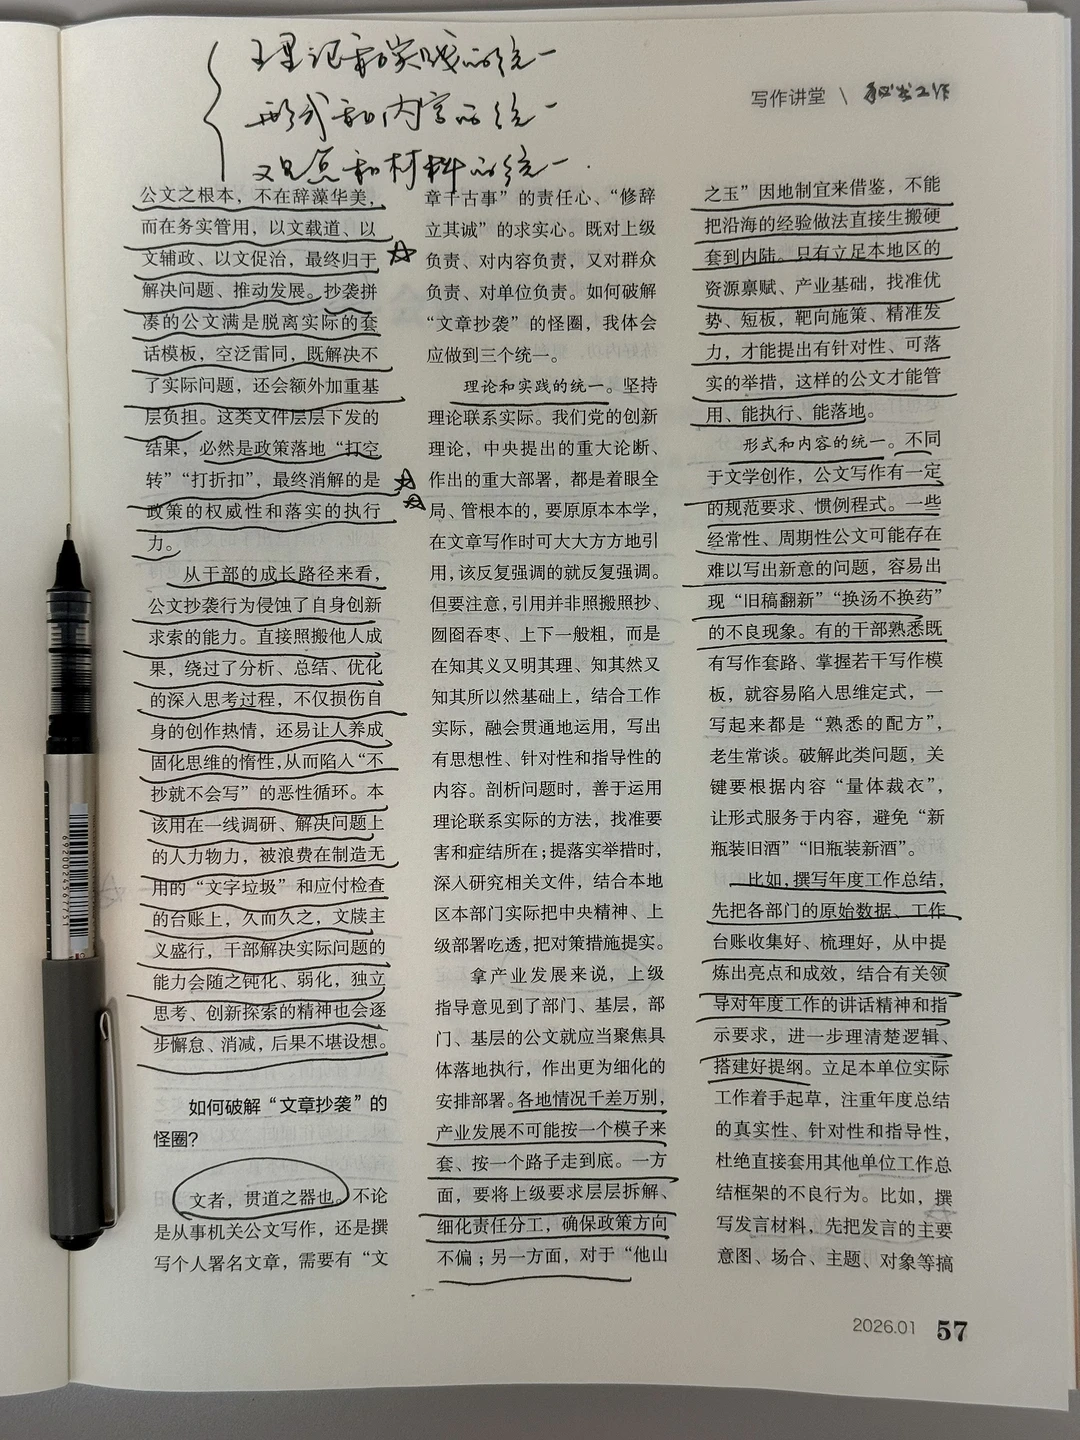 理论和实践的统一
形式和内容的统一
观点和材料的统一.
写作讲堂 \ 秘书工作
公文之根本，不在辞藻华美，
而在务实管用，以文载道、以
文辅政、以文促治，最终归于
解决问题、推动发展。抄袭拼
凑的公文满是脱离实际的套
话模板，空泛雷同，既解决不
了实际问题，还会额外加重基
层负担。这类文件层层下发的
结果，必然是政策落地“打空
转”“打折扣”，最终消解的是
政策的权威性和落实的执行
力。
从干部的成长路径来看，
公文抄袭行为侵蚀了自身创新
求索的能力。直接照搬他人成
果，绕过了分析、总结、优化
的深入思考过程，不仅损伤自
身的创作热情，还易让人养成
固化思维的惰性，从而陷入“不
抄就不会写”的恶性循环。本
该用在一线调研、解决问题上
的人力物力，被浪费在制造无
用的“文字垃圾”和应付检查
的台账上，久而久之，文牍主
义盛行，干部解决实际问题的
能力会随之钝化、弱化，独立
思考、创新探索的精神也会逐
步懈怠、消减，后果不堪设想。
如何破解“文章抄袭”的
怪圈？
文者，贯道之器也。不论
是从事机关公文写作，还是撰
写个人署名文章，需要有“文
章千古事”的责任心、“修辞
立其诚”的求实心。既对上级
负责、对内容负责，又对群众
负责、对单位负责。如何破解
“文章抄袭”的怪圈，我体会
应做到三个统一。
理论和实践的统一。坚持
理论联系实际。我们党的创新
理论，中央提出的重大论断、
作出的重大部署，都是着眼全
局、管根本的，要原原本本学，
在文章写作时可大大方方地引
用，该反复强调的就反复强调。
但要注意，引用并非照搬照抄、
囫囵吞枣、上下一般粗，而是
在知其义又明其理、知其然又
知其所以然基础上，结合工作
实际，融会贯通地运用，写出
有思想性、针对性和指导性的
内容。剖析问题时，善于运用
理论联系实际的方法，找准要
害和症结所在；提落实举措时，
深入研究相关文件，结合本地
区本部门实际把中央精神、上
级部署吃透，把对策措施提实。
拿产业发展来说，上级
指导意见到了部门、基层，部
门、基层的公文就应当聚焦具
体落地执行，作出更为细化的
安排部署。各地情况千差万别，
产业发展不可能按一个模子来
套、按一个路子走到底。一方
面，要将上级要求层层拆解、
细化责任分工，确保政策方向
不偏；另一方面，对于“他山
之玉”因地制宜来借鉴，不能
把沿海的经验做法直接生搬硬
套到内陆。只有立足本地区的
资源禀赋、产业基础，找准优
势、短板，靶向施策、精准发
力，才能提出有针对性、可落
实的举措，这样的公文才能管
用、能执行、能落地。
形式和内容的统一。不同
于文学创作，公文写作有一定
的规范要求、惯例程式。一些
经常性、周期性公文可能存在
难以写出新意的问题，容易出
现“旧稿翻新”“换汤不换药”
的不良现象。有的干部熟悉既
有写作套路、掌握若干写作模
板，就容易陷入思维定式，一
写起来都是“熟悉的配方”，
老生常谈。破解此类问题，关
键要根据内容“量体裁衣”，
让形式服务于内容，避免“新
瓶装旧酒”“旧瓶装新酒”。
比如，撰写年度工作总结，
先把各部门的原始数据、工作
台账收集好、梳理好，从中提
炼出亮点和成效，结合有关领
导对年度工作的讲话精神和指
示要求，进一步理清楚逻辑、
搭建好提纲。立足本单位实际
工作着手起草，注重年度总结
的真实性、针对性和指导性，
杜绝直接套用其他单位工作总
结框架的不良行为。比如，撰
写发言材料，先把发言的主要
意图、场合、主题、对象等搞
2026.01 57
6920024567751